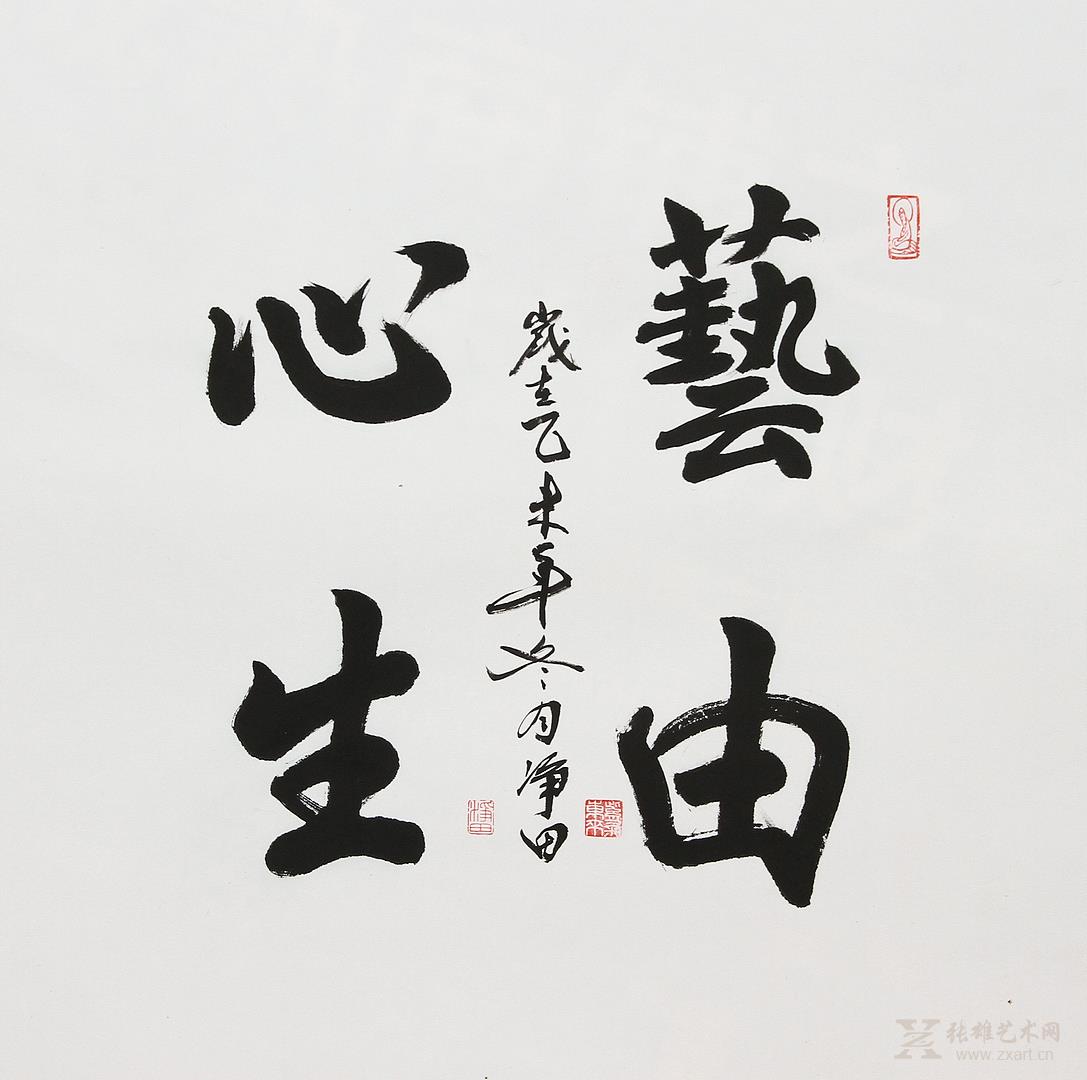 藝由
心生
歲在乙未年冬月淨田
张雄艺术网
www.zxart.cn